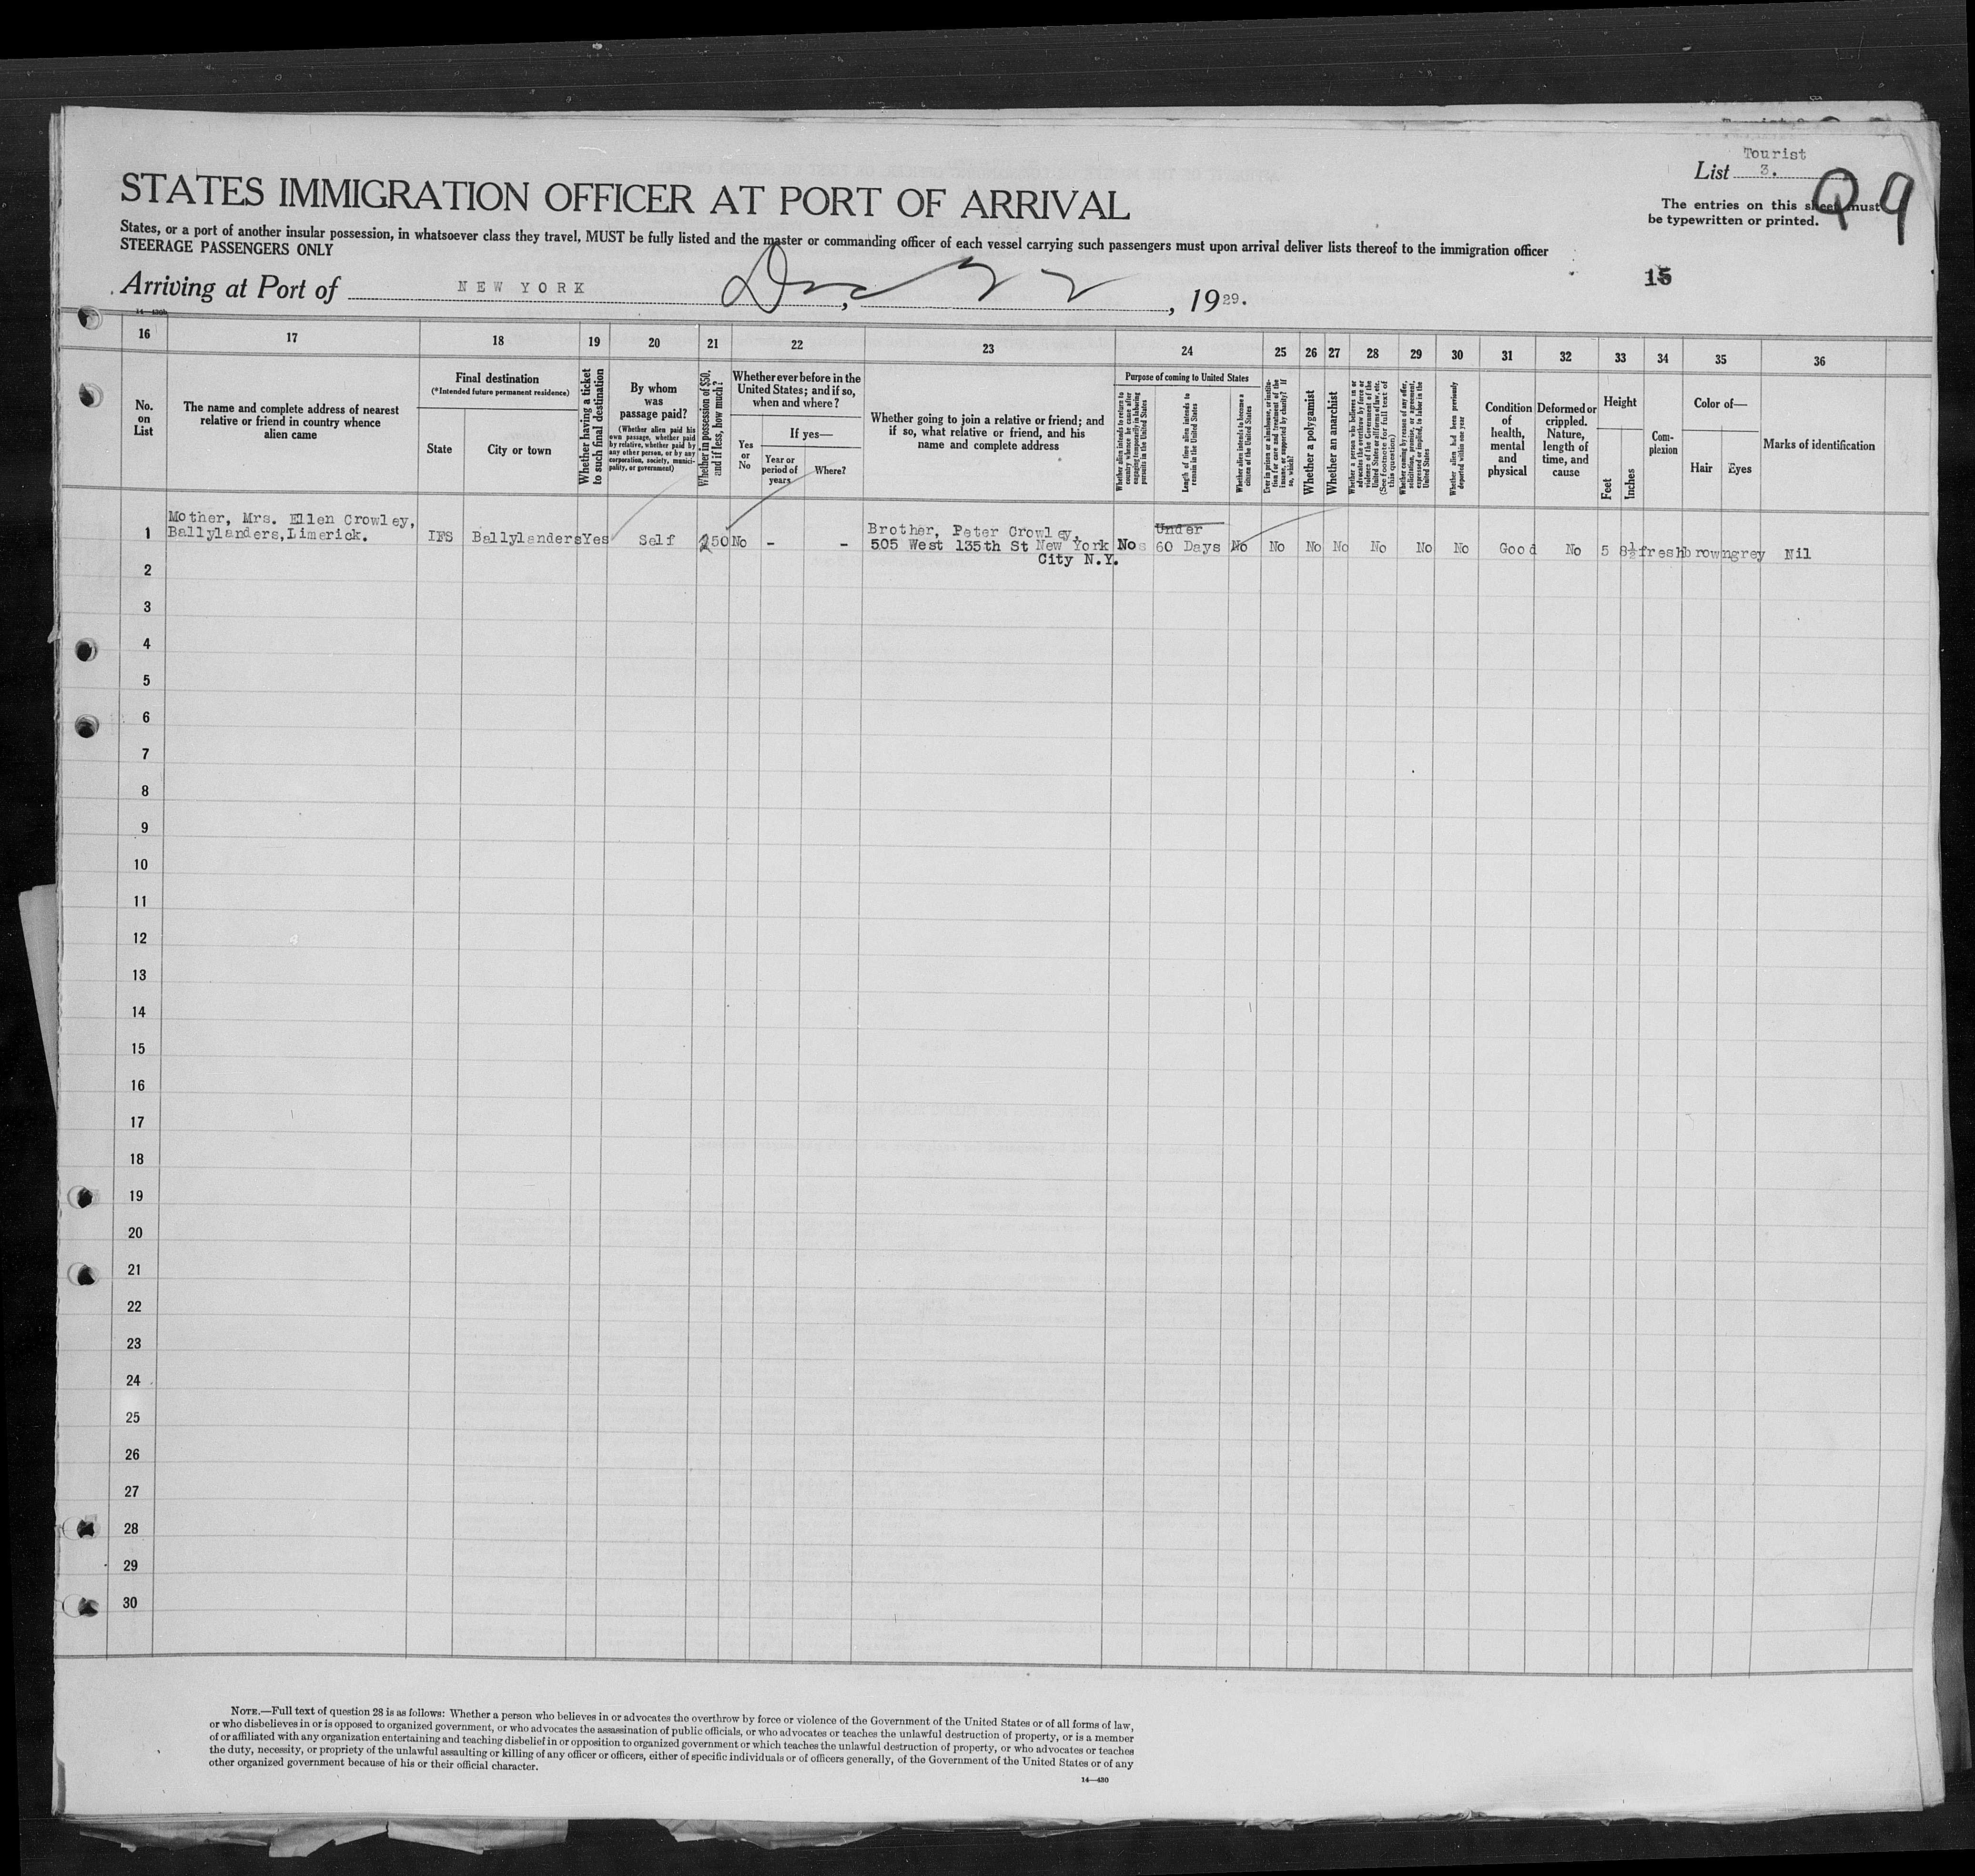 Tourist
List 3.
Q9
STATES IMMIGRATION OFFICER AT PORT OF ARRIVAL
The entries on this sheet must
be typewritten or printed.
States, or a port of another insular possession, in whatsoever class they travel, MUST be fully listed and the master or commanding officer of each vessel carrying such passengers must upon arrival deliver lists thereof to the immigration officer
STEERAGE PASSENGERS ONLY
15
Arriving at Port of NEW YORK Dec 22, 1929.
14—430b
16 17 18 19 20 21 22 23 24 25 26 27 28 29 30 31 32 33 34 35 36
No.
on
List
The name and complete address of nearest
relative or friend in country whence
alien came
Final destination
(*Intended future permanent residence)
State
City or town
Whether having a ticket
to such final destination
By whom
was
passage paid?
(Whether alien paid his
own passage, whether paid
by relative, whether paid by
any other person, or by any
corporation, society, munici-
pality, or government)
Whether in possession of $50,
and if less, how much?
Whether ever before in the
United States; and if so,
when and where?
Yes
or
No
If yes—
Year or
period of
years
Where?
Whether going to join a relative or friend; and
if so, what relative or friend, and his
name and complete address
Purpose of coming to United States
Whether alien intends to return to
country whence he came after
engaging temporarily in laboring
pursuits in the United States
Length of time alien intends to
remain in the United States
Whether alien intends to become a
citizen of the United States
Ever in prison or almshouse, or institu-
tion for care and treatment of the
insane, or supported by charity? If
so, which?
Whether a polygamist
Whether an anarchist
Whether a person who believes in or
advocates the overthrow by force or
violence of the Government of the
United States or all forms of law, etc.
(See footnote for full text of
this question)
Whether coming by reason of any offer,
solicitation, promise, or agreement,
expressed or implied, to labor in the
United States
Whether alien had been previously
deported within one year
Condition
of
health,
mental
and
physical
Deformed or
crippled.
Nature,
length of
time, and
cause
Height
Feet
Inches
Com-
plexion
Color of—
Hair
Eyes
Marks of identification
1 Mother, Mrs. Ellen Crowley,
Ballylanders, Limerick. IFS Ballylanders Yes Self 250 No - - Brother, Peter Crowley,
505 West 135th St New York
City N.Y. No Under
60 Days No No No No No No No Good No 5 8½ fresh brown grey Nil
2
3
4
5
6
7
8
9
10
11
12
13
14
15
16
17
18
19
20
21
22
23
24
25
26
27
28
29
30
NOTE.—Full text of question 28 is as follows: Whether a person who believes in or advocates the overthrow by force or violence of the Government of the United States or of all forms of law,
or who disbelieves in or is opposed to organized government, or who advocates the assassination of public officials, or who advocates or teaches the unlawful destruction of property, or is a member
of or affiliated with any organization entertaining and teaching disbelief in or opposition to organized government or which teaches the unlawful destruction of property, or who advocates or teaches
the duty, necessity, or propriety of the unlawful assaulting or killing of any officer or officers, either of specific individuals or of officers generally, of the Government of the United States or of any
other organized government because of his or their official character.
14—430